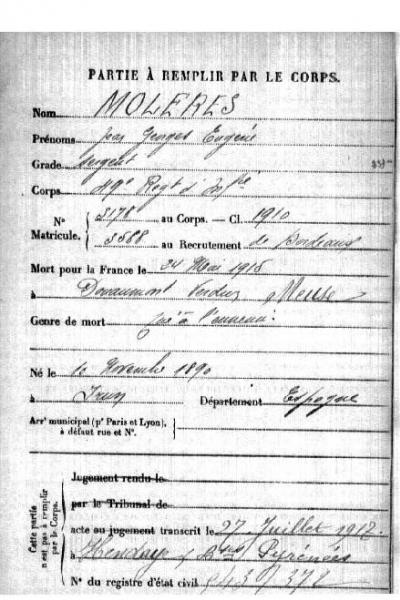 PARTIE À REMPLIR PAR LE CORPS.
Nom MOLERES
Prénoms Jean Georges Eugène
Grade Sergent
Corps 49e Regt d'Infie
N° Matricule. 3178 au Corps. — Cl. 1910
3588 au Recrutement de Bordeaux
Mort pour la France le 24 Mai 1916
à Douaumont Verdun Meuse
Genre de mort tué à l'ennemi
Né le 10 Novembre 1890
à Irun Département Espagne
Arrt municipal (pr Paris et Lyon), à défaut rue et N°.
Cette partie n'est pas à remplir par le Corps.
Jugement rendu le
par le Tribunal de
acte ou jugement transcrit le 27 Juillet 1917
à Hendaye Bses Pyrénées
N° du registre d'état civil